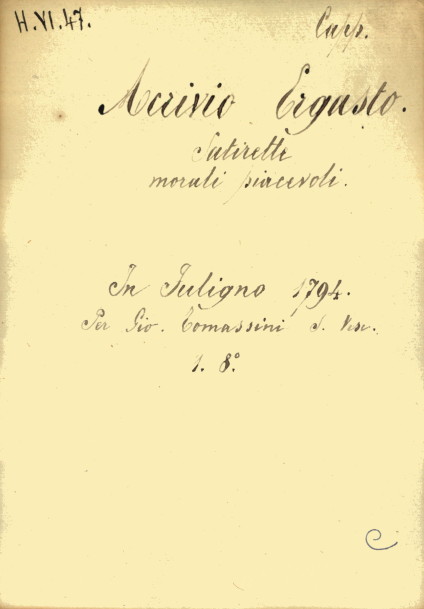 H.VI.47.
Capp.
Acrivio Ergasto.
Satirette
morali piacevoli.
In Fuligno 1794.
Per Gio. Tomassini S. Ves.
1. 8°.